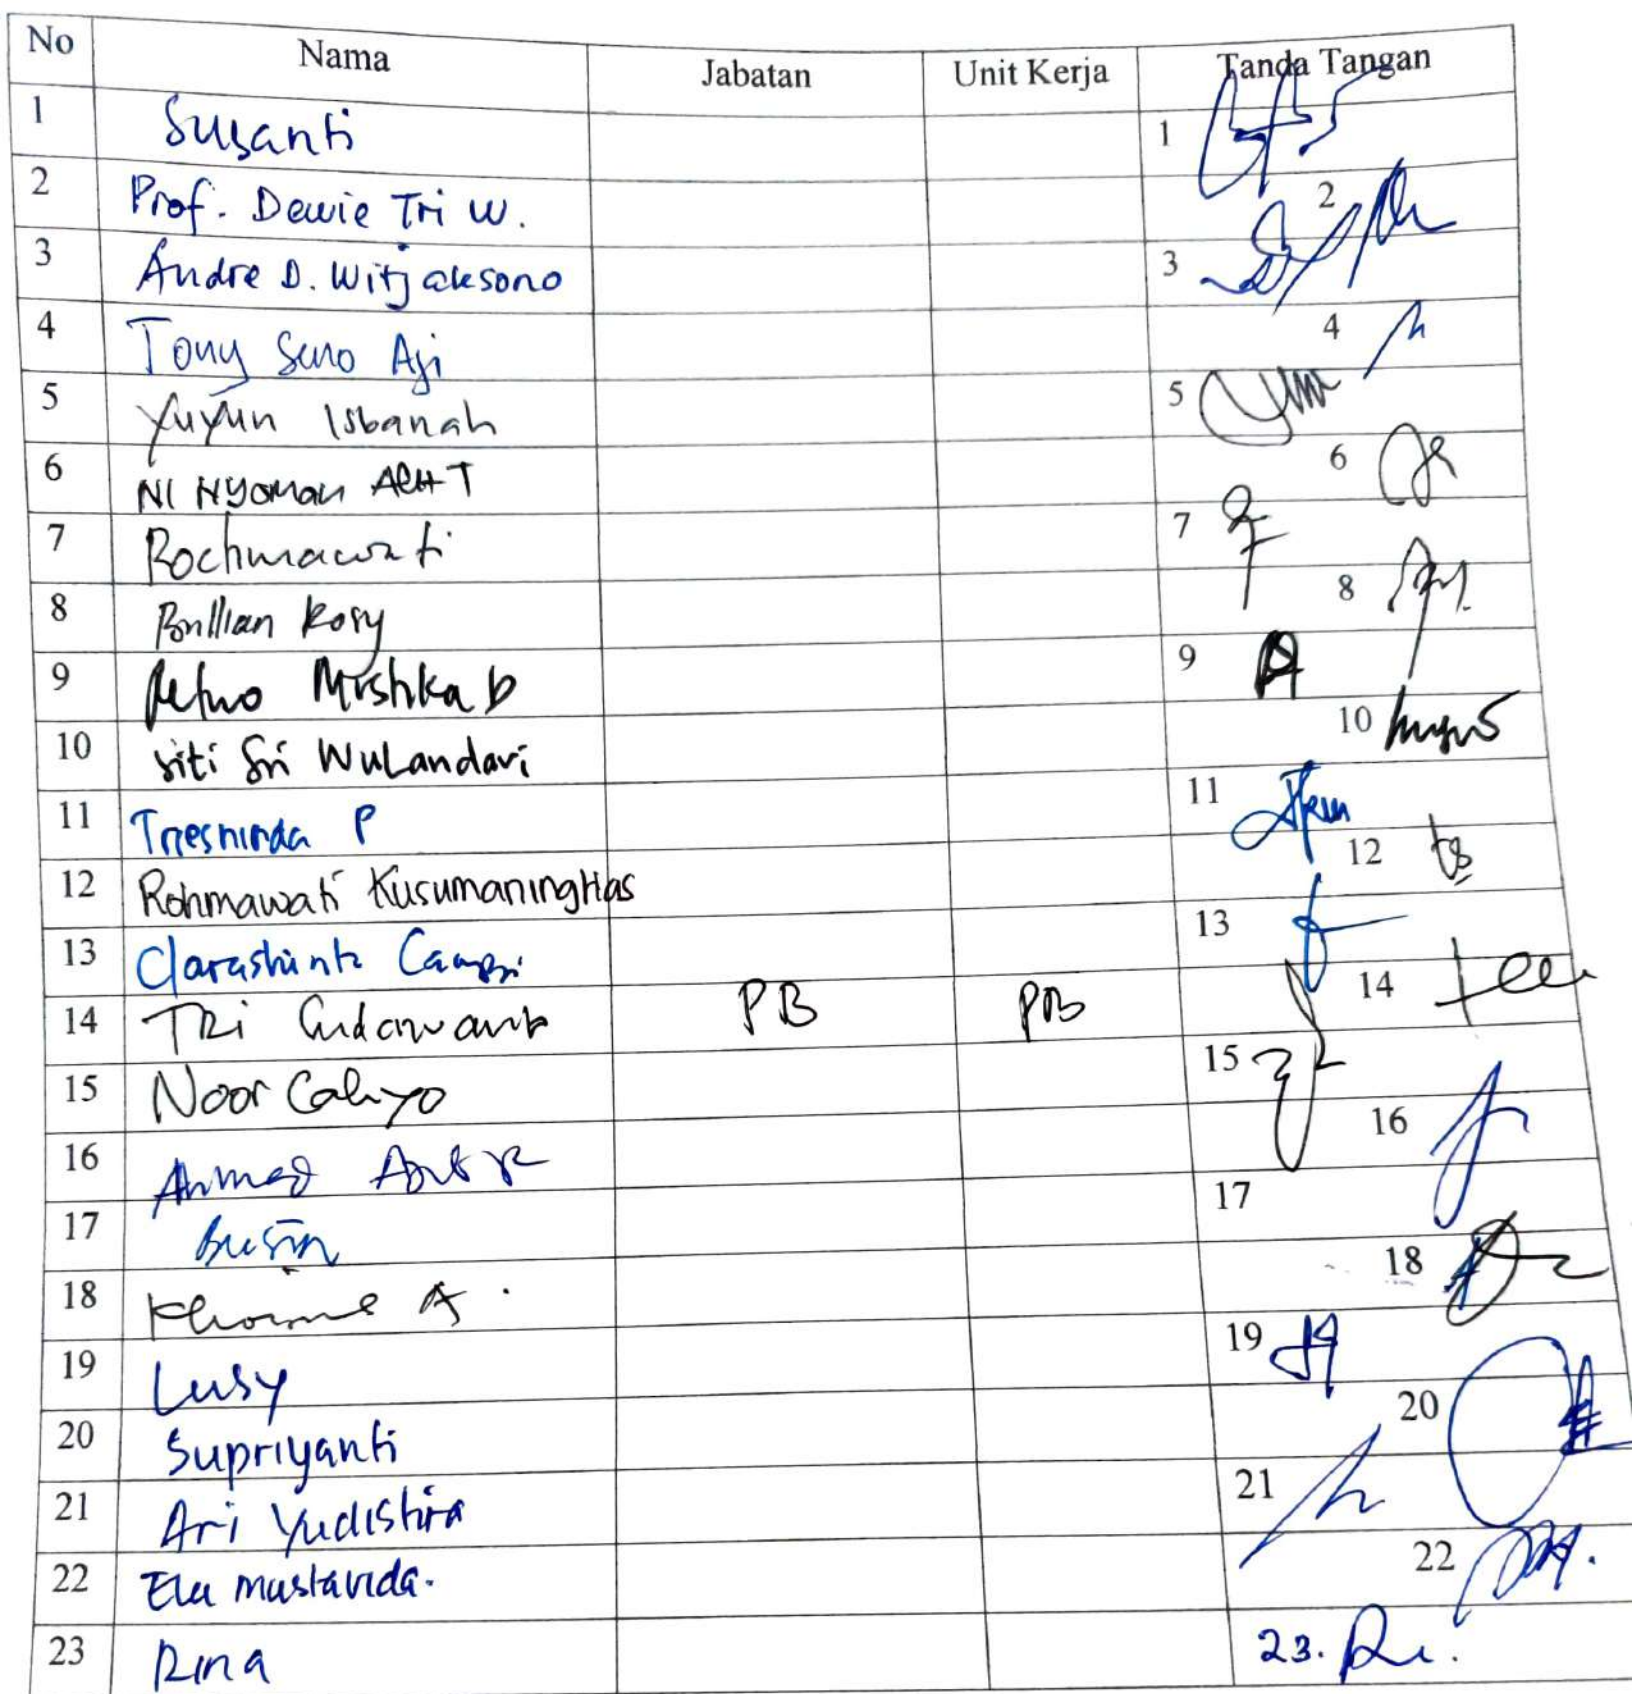 No Nama Jabatan Unit Kerja Tanda Tangan
1 Susanti 1
2 Prof. Dewie Tri W. 2
3 Andre D. Witjaksono 3
4 Tony Seno Aji 4
5 Yuyun Isbanah 5
6 NI NYOMAN 6
7 Rochmawati 7
8 Brillian Rosy 8
9 Retno Mustika D 9
10 Siti Sri Wulandari 10
11 Triesninda P 11
12 Rohmawati Kusumaningtias 12
13 Clarashinta 13
14 TRI PB PB 14
15 Noor Cahyo 15
16 Ahmad 16
17 17
18 A. 18
19 Lusy 19
20 Supriyanti 20
21 Ari Yudistira 21
22 Ela mustavida. 22
23 Rina 23.